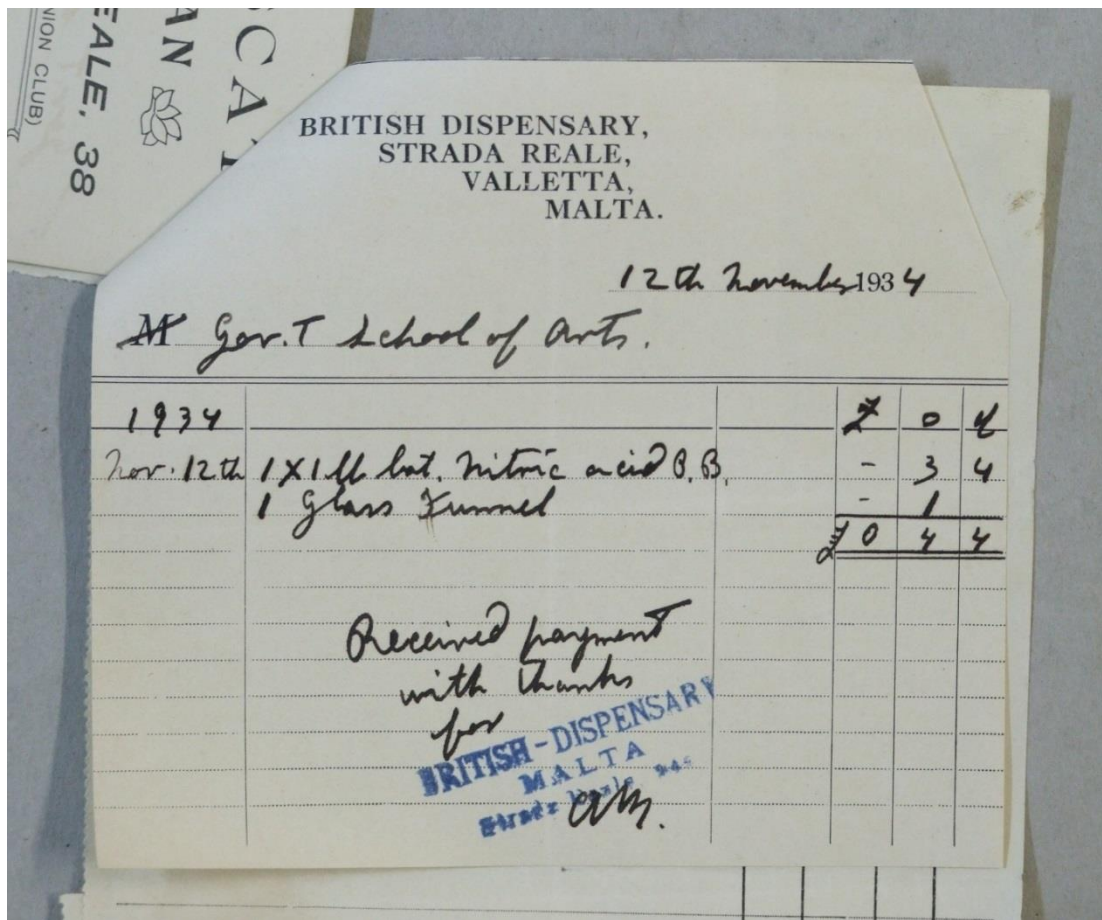 NION CLUB)
EALE, 38
AN
SCA
BRITISH DISPENSARY,
STRADA REALE,
VALLETTA,
MALTA.
12th November 1934
M Gov.T School of Arts.
1934 £ s d
Nov. 12th 1 X 1 lb bot. Nitric acid B.P. - 3 4
1 Glass Funnel - 1
£ 0 4 4
Received payment
with thanks
for
BRITISH-DISPENSARY
MALTA
Strada Reale